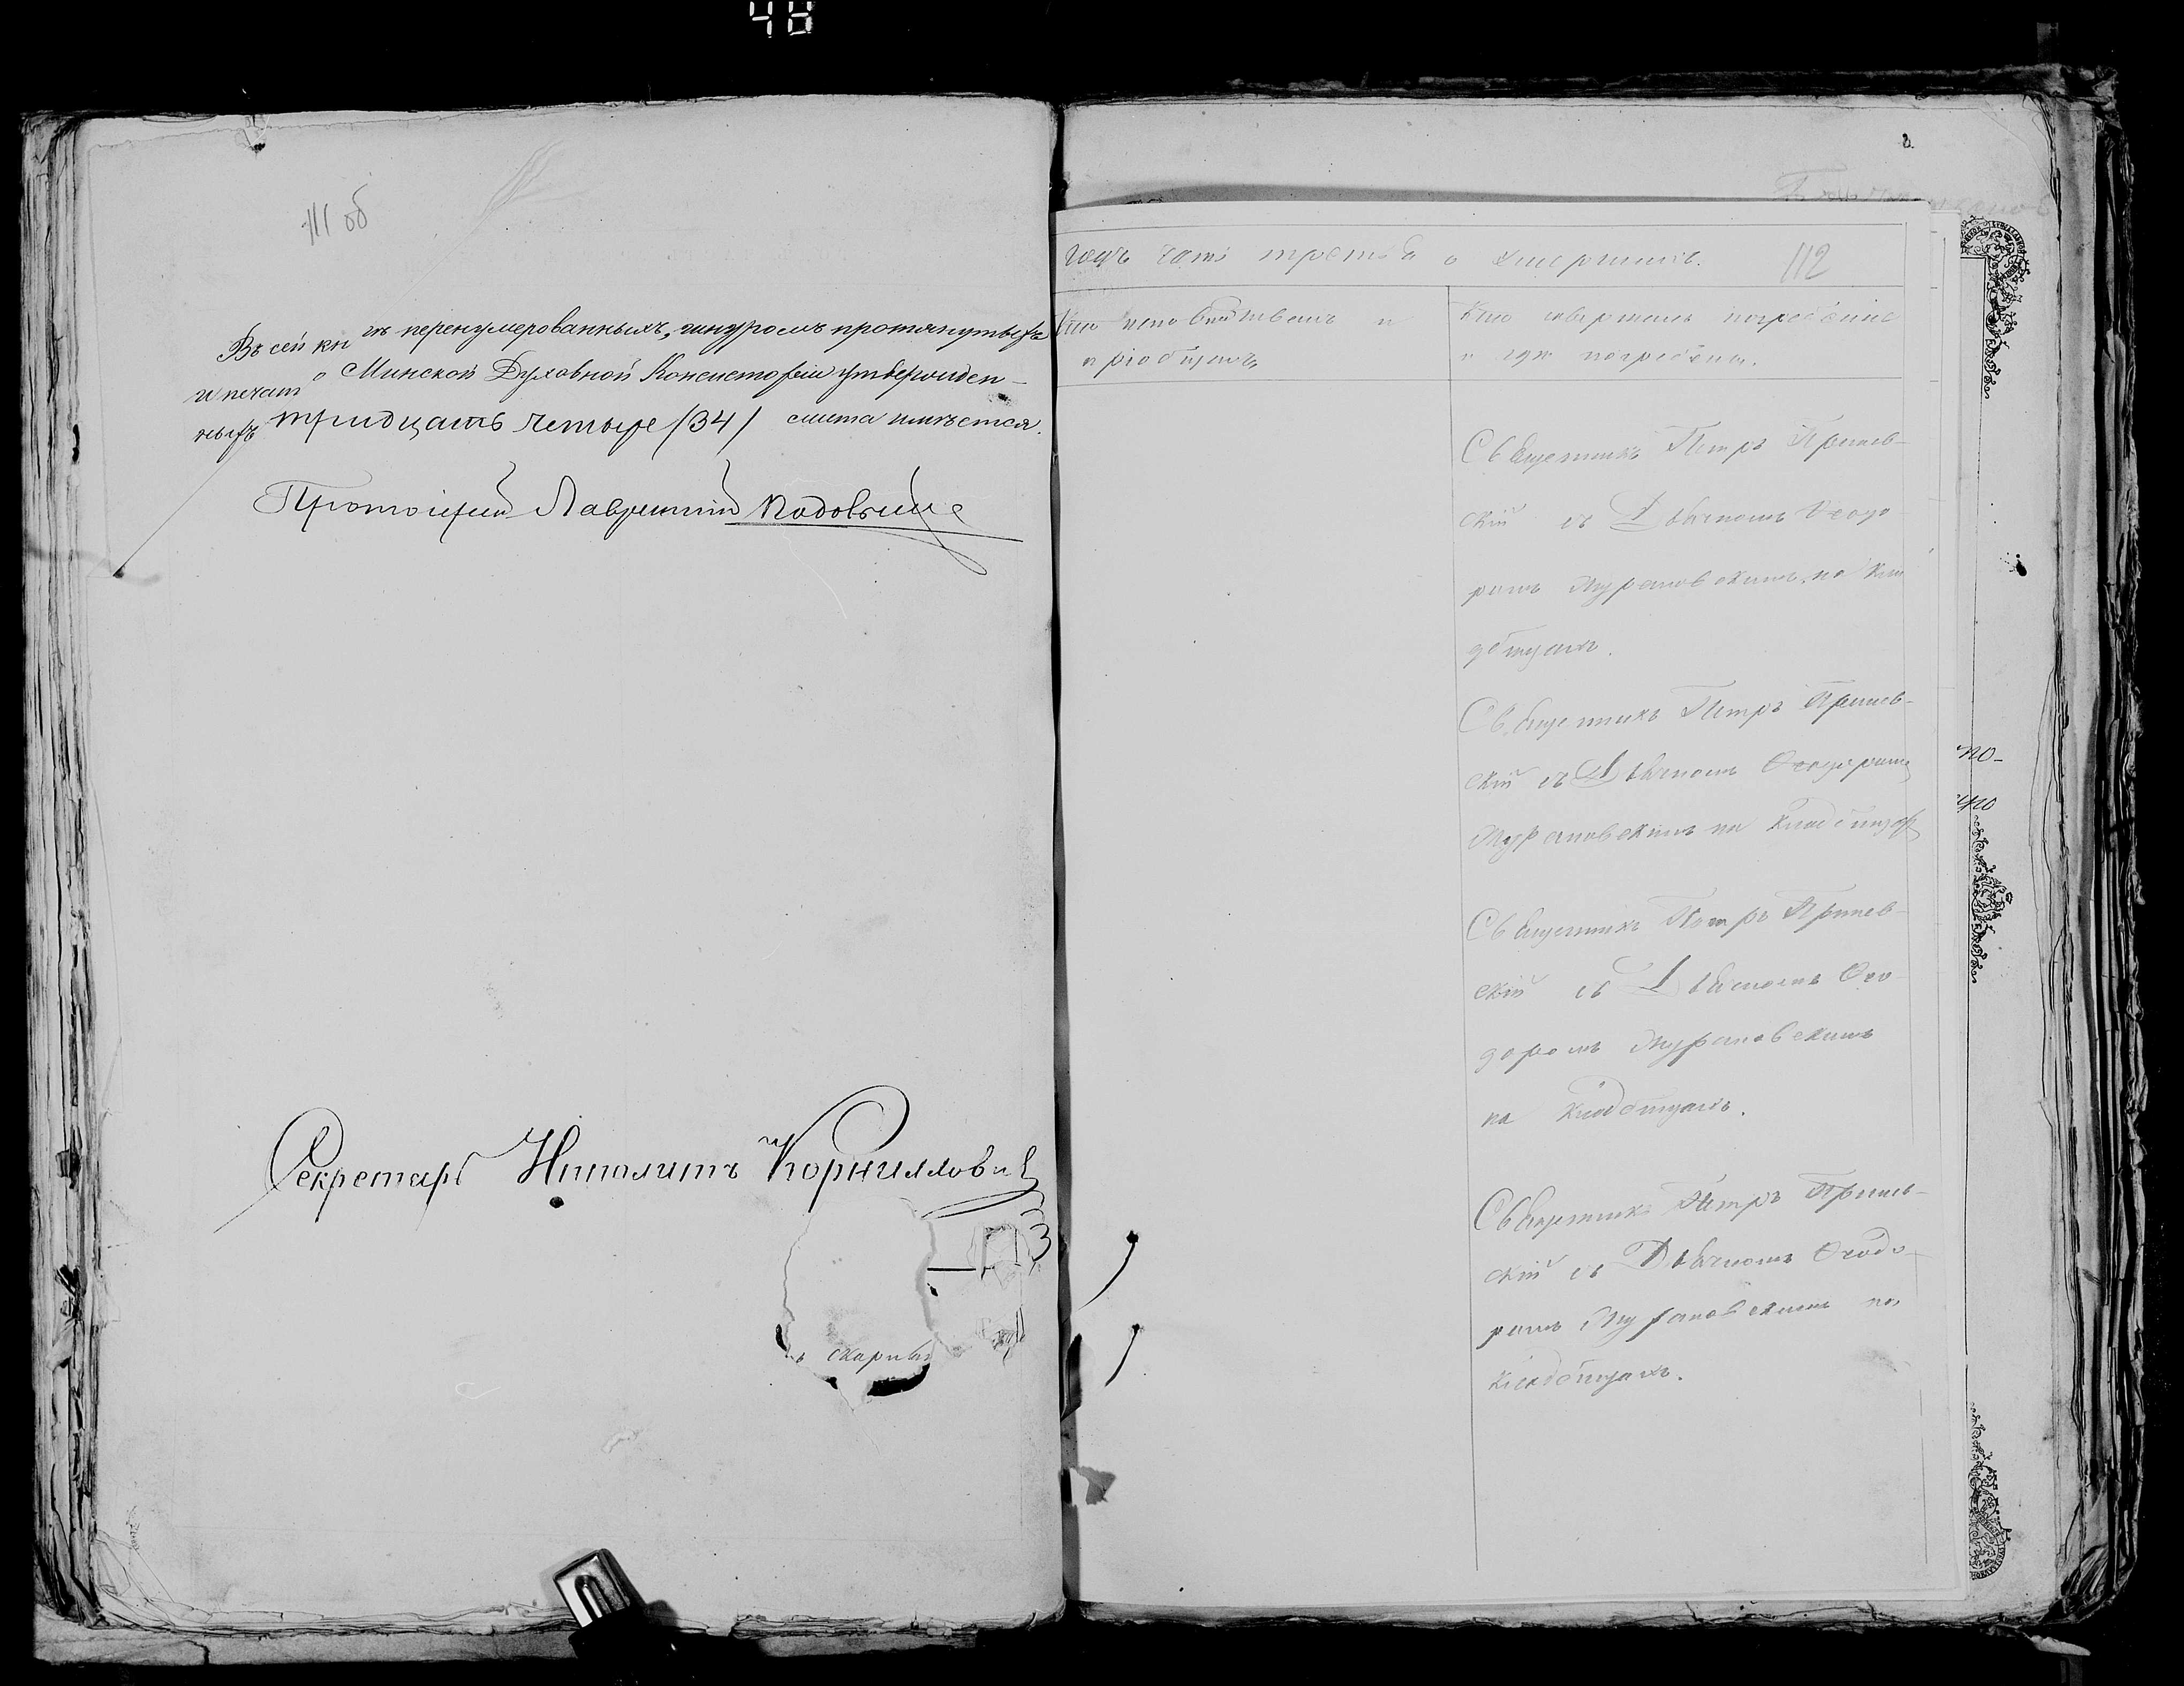 48
111 об
Въ сей кн гѣ перенумерованныхъ, шнуромъ протянутыхъ
и печат ю Минской Духовной Консисторіи утвержден-
ныхъ тридцать четыре /34/ листа имѣется.
Протоіерей Лаврентій
Секретарь Ипполитъ Корниллович
скарпы
годъ часть третья о умершихъ. 112
Кто исповѣдывалъ и
пріобщалъ
Кто совершалъ погребеніе
и гдѣ погребены.
Священникъ Петръ
скій съ Дьячкомъ Ѳеодо
ромъ Мурановскимъ на Кла
дбищахъ.
Священникъ Петръ
скій съ Дьячкомъ Ѳеодоромъ
Мурановскимъ на Кладбищахъ
Священникъ Петръ
скій съ Дьячкомъ Ѳео-
доромъ Мурановскимъ
на Кладбищахъ.
Священникъ Петръ
скій съ Дьячкомъ Ѳеодо-
ромъ Мурановскимъ на
Кладбищахъ.
по-